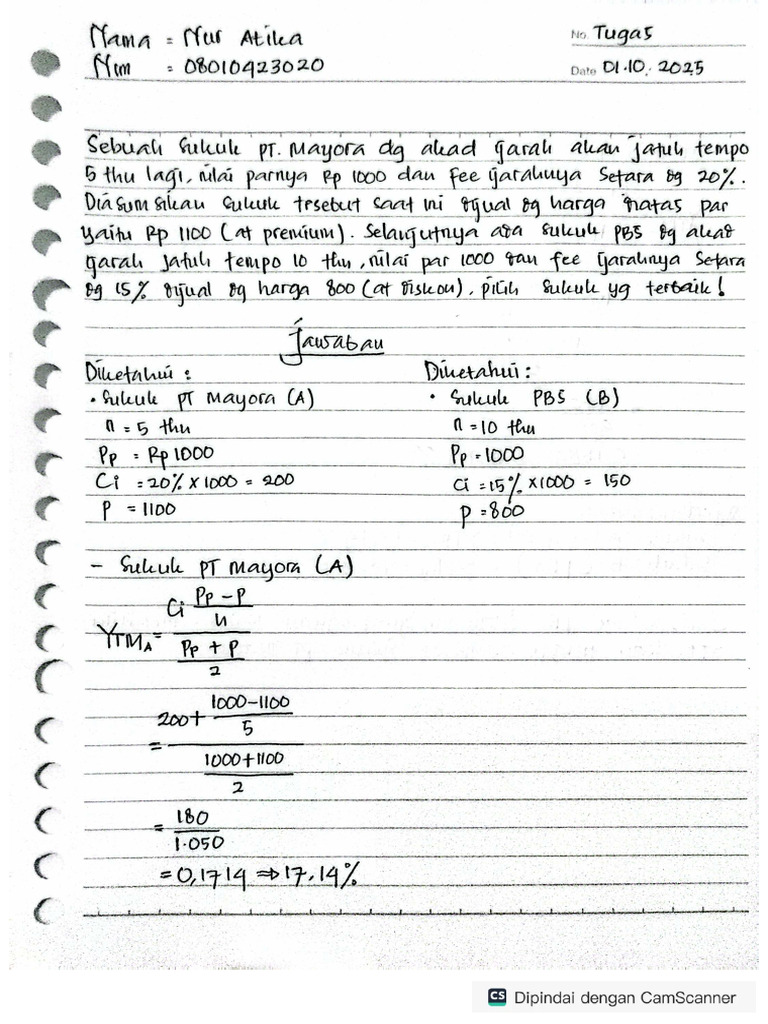 Nama = Nur Atika
No. Tugas
Nim = 08010423020
Date 01.10.2025
Sebuah Sukuk PT. Mayora dg akad Ijarah akan jatuh tempo
5 thn lagi, nilai parnya Rp 1000 dan fee Ijarahnya Setara dg 20%.
Diasumsikan Sukuk trsebut saat ini dijual dg harga diatas par
yaitu Rp 1100 (at premium). Selanjutnya ada sukuk PBS dg akad
Ijarah jatuh tempo 10 thn, nilai par 1000 dan fee Ijarahnya Setara
dg 15% dijual dg harga 800 (at diskon). pilih sukuk yg terbaik!
Jawaban
Diketahui :
• Sukuk PT Mayora (A)
n = 5 thn
Pp = Rp 1000
Ci = 20% x 1000 = 200
P = 1100
Diketahui :
• Sukuk PBS (B)
n = 10 thn
Pp = 1000
Ci = 15% x 1000 = 150
P = 800
- Sukuk PT Mayora (A)
Ci Pp - P
n
YTMA =
Pp + P
2
200 + 1000 - 1100
5
=
1000 + 1100
2
= 180
1.050
= 0,1714 ⇒ 17,14%
CS Dipindai dengan CamScanner